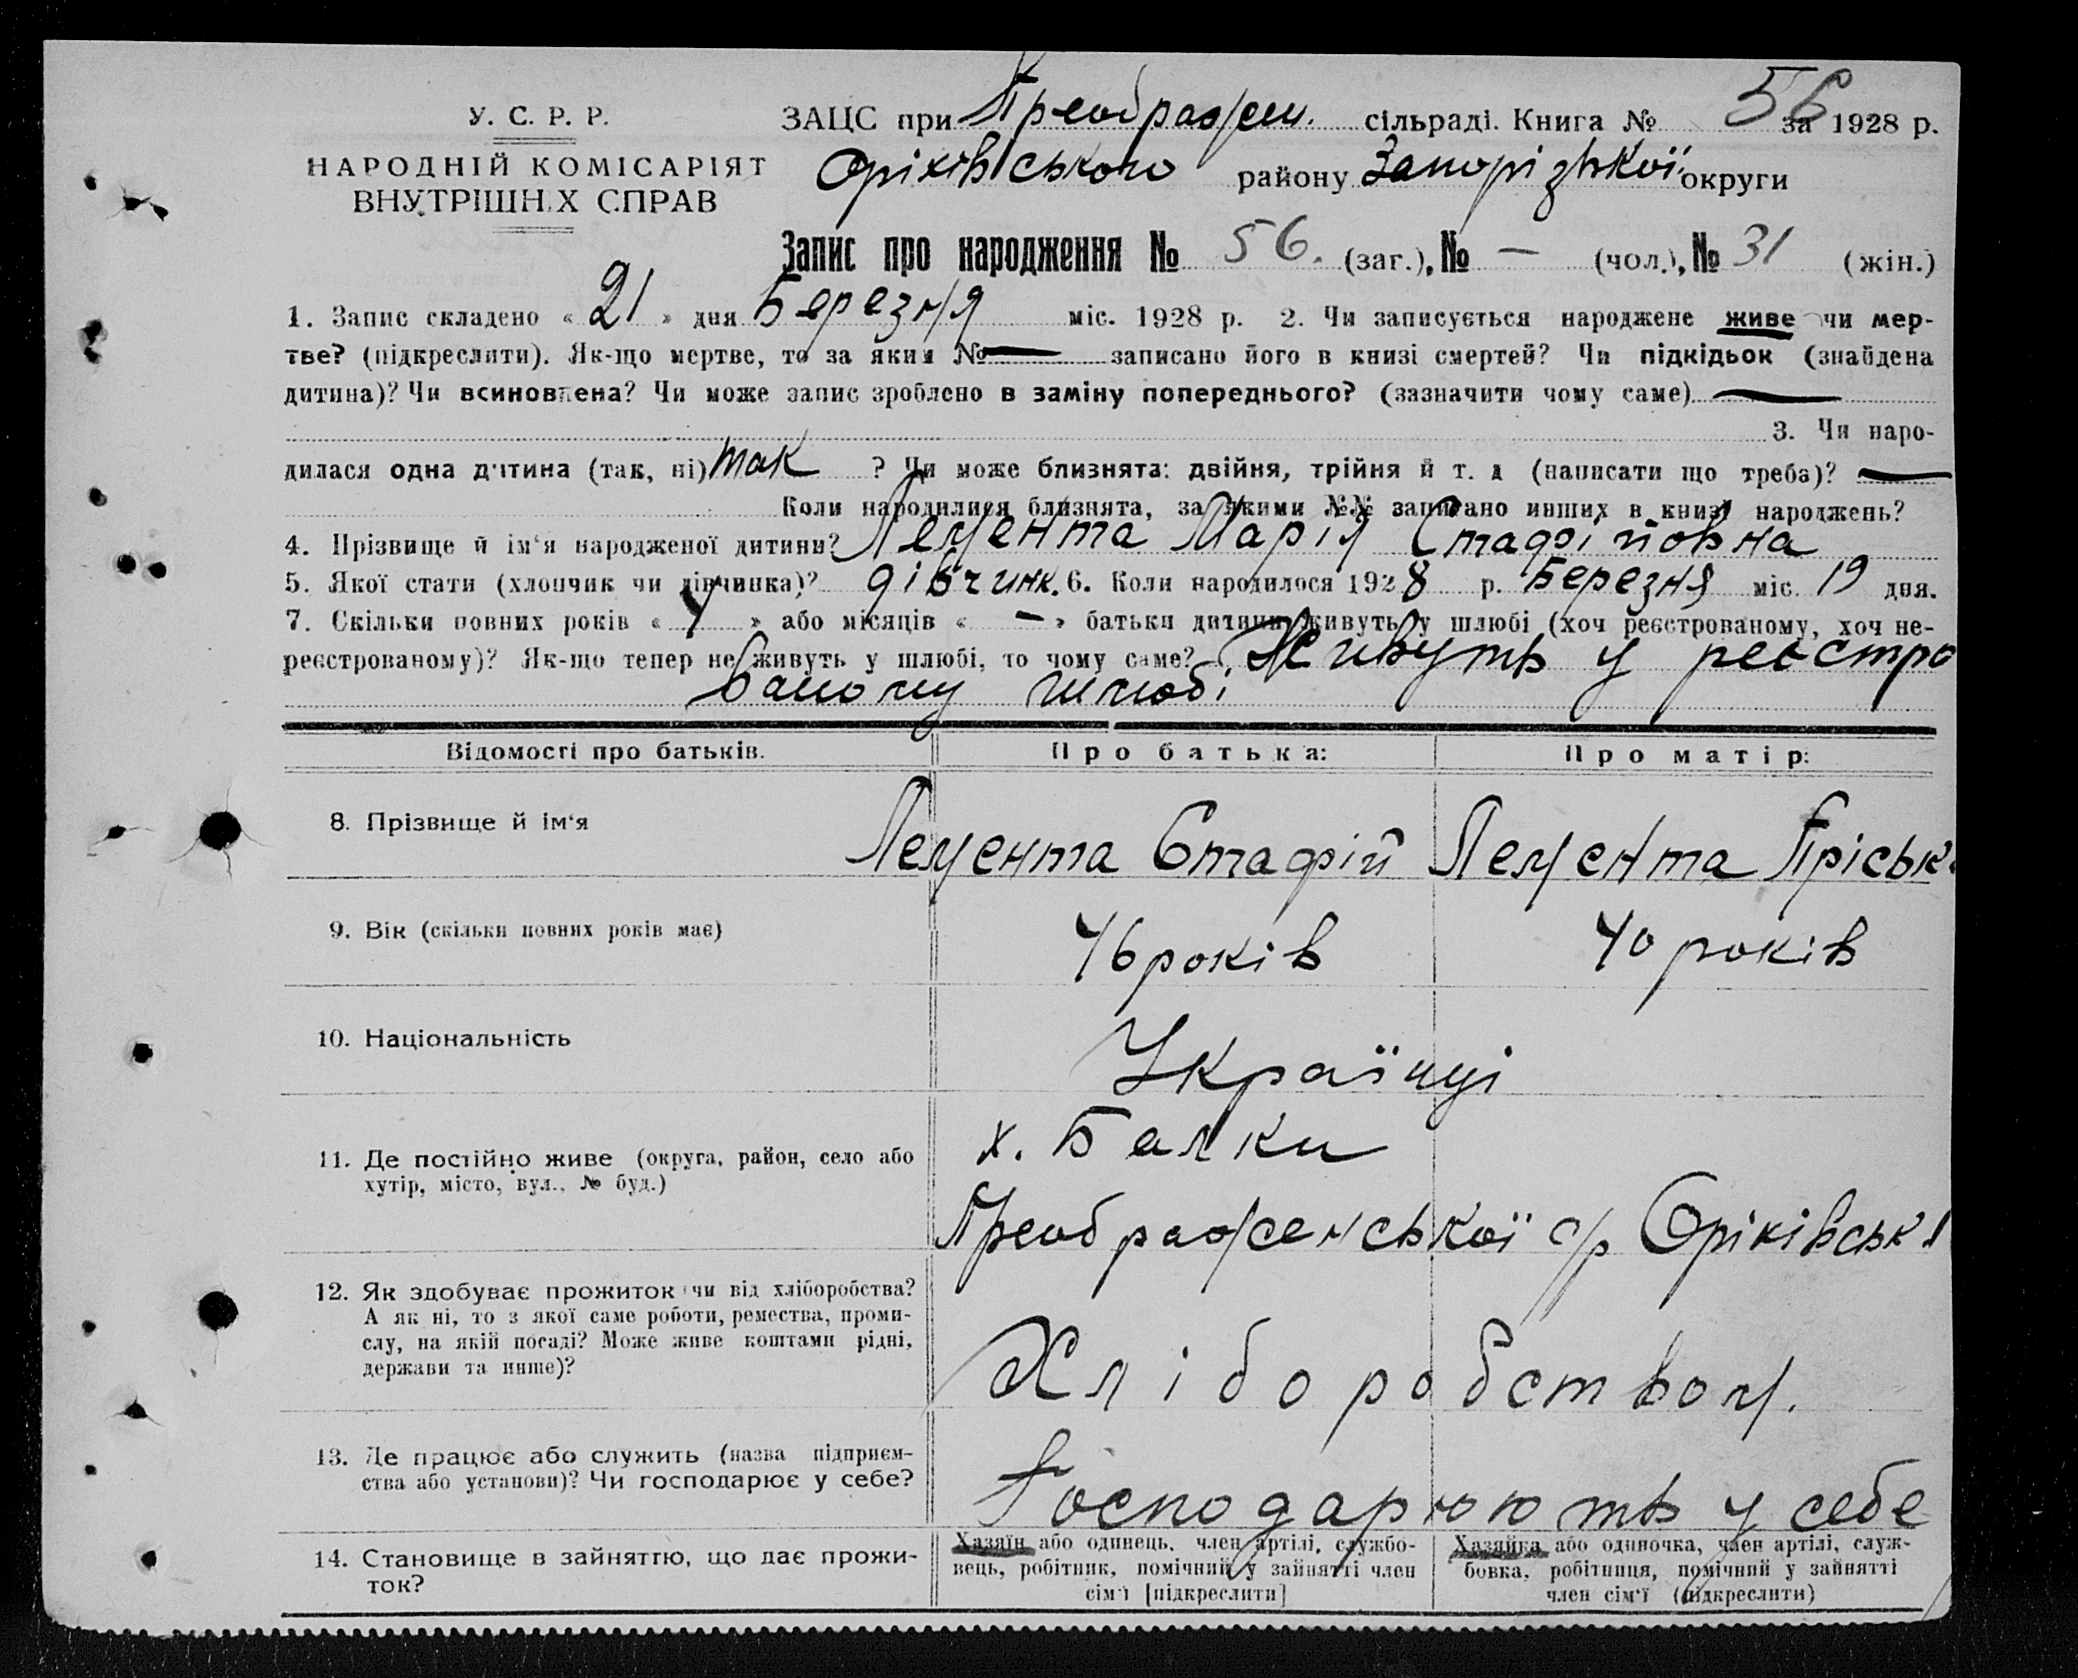 У. С. Р. Р.
НАРОДНІЙ КОМІСАРІЯТ
ВНУТРІШНІХ СПРАВ
ЗАЦС при Преображен. сільраді. Книга № 56 за 1928 р.
Оріхівського району Запорізької округи
Запис про народження № 56. (заг.), № — (чол.), № 31 (жін.)
1. Запис складено « 21 » дня Березня міс. 1928 р. 2. Чи записується народжене живе чи мер-
тве? (підкреслити). Як-що мертве, то за яким № — записано його в книзі смертей? Чи підкідьок (знайдена
дитина)? Чи всиновлена? Чи може запис зроблено в заміну попереднього? (зазначити чому саме) —
3. Чи наро-
дилася одна дитина (так, ні) так ? Чи може близнята: двійня, трійня й т. д (написати що треба)? —
Коли народилися близнята, за якими №№ записано инших в книзі народжень?
4. Прізвище й ім'я народженої дитини? Лемента Марія Стафійовна
5. Якої стати (хлопчик чи дівчинка)? дівчинк. 6. Коли народилося 1928 р. Березня міс. 19 дня.
7. Скільки повних років « » або місяців « — » батьки дитини живуть у шлюбі (хоч реєстрованому, хоч не-
реєстрованому)? Як-що тепер не живуть у шлюбі, то чому саме? Живуть у реєстро
ваному шлюбі
Відомості про батьків. Про батька: Про матір:
8. Прізвище й ім'я Лемента Стафій Лемента Пріська
9. Вік (скільки повних років має) 46 років 40 років
10. Національність Українці
11. Де постійно живе (округа, район, село або
хутір, місто, вул., № буд.)
х. Балки
Преображенської с/р Оріхівськ
12. Як здобуває прожиток чи від хліборобства?
А як ні, то з якої саме роботи, ремества, проми-
слу, на якій посаді? Може живе коштами рідні,
держави та инше)?
Хліборобством.
13. Де працює або служить (назва підприєм-
ства або установи)? Чи господарює у себе?
Господарюють у себе
14. Становище в зайняттю, що дає прожи-
ток?
Хазяїн або одинець, член артілі, службо-
вець, робітник, помічний у зайнятті член
сім'ї [підкреслити]
Хазяйка або одиночка, член артілі, служ-
бовка, робітниця, помічний у зайнятті
член сім'ї (підкреслити)